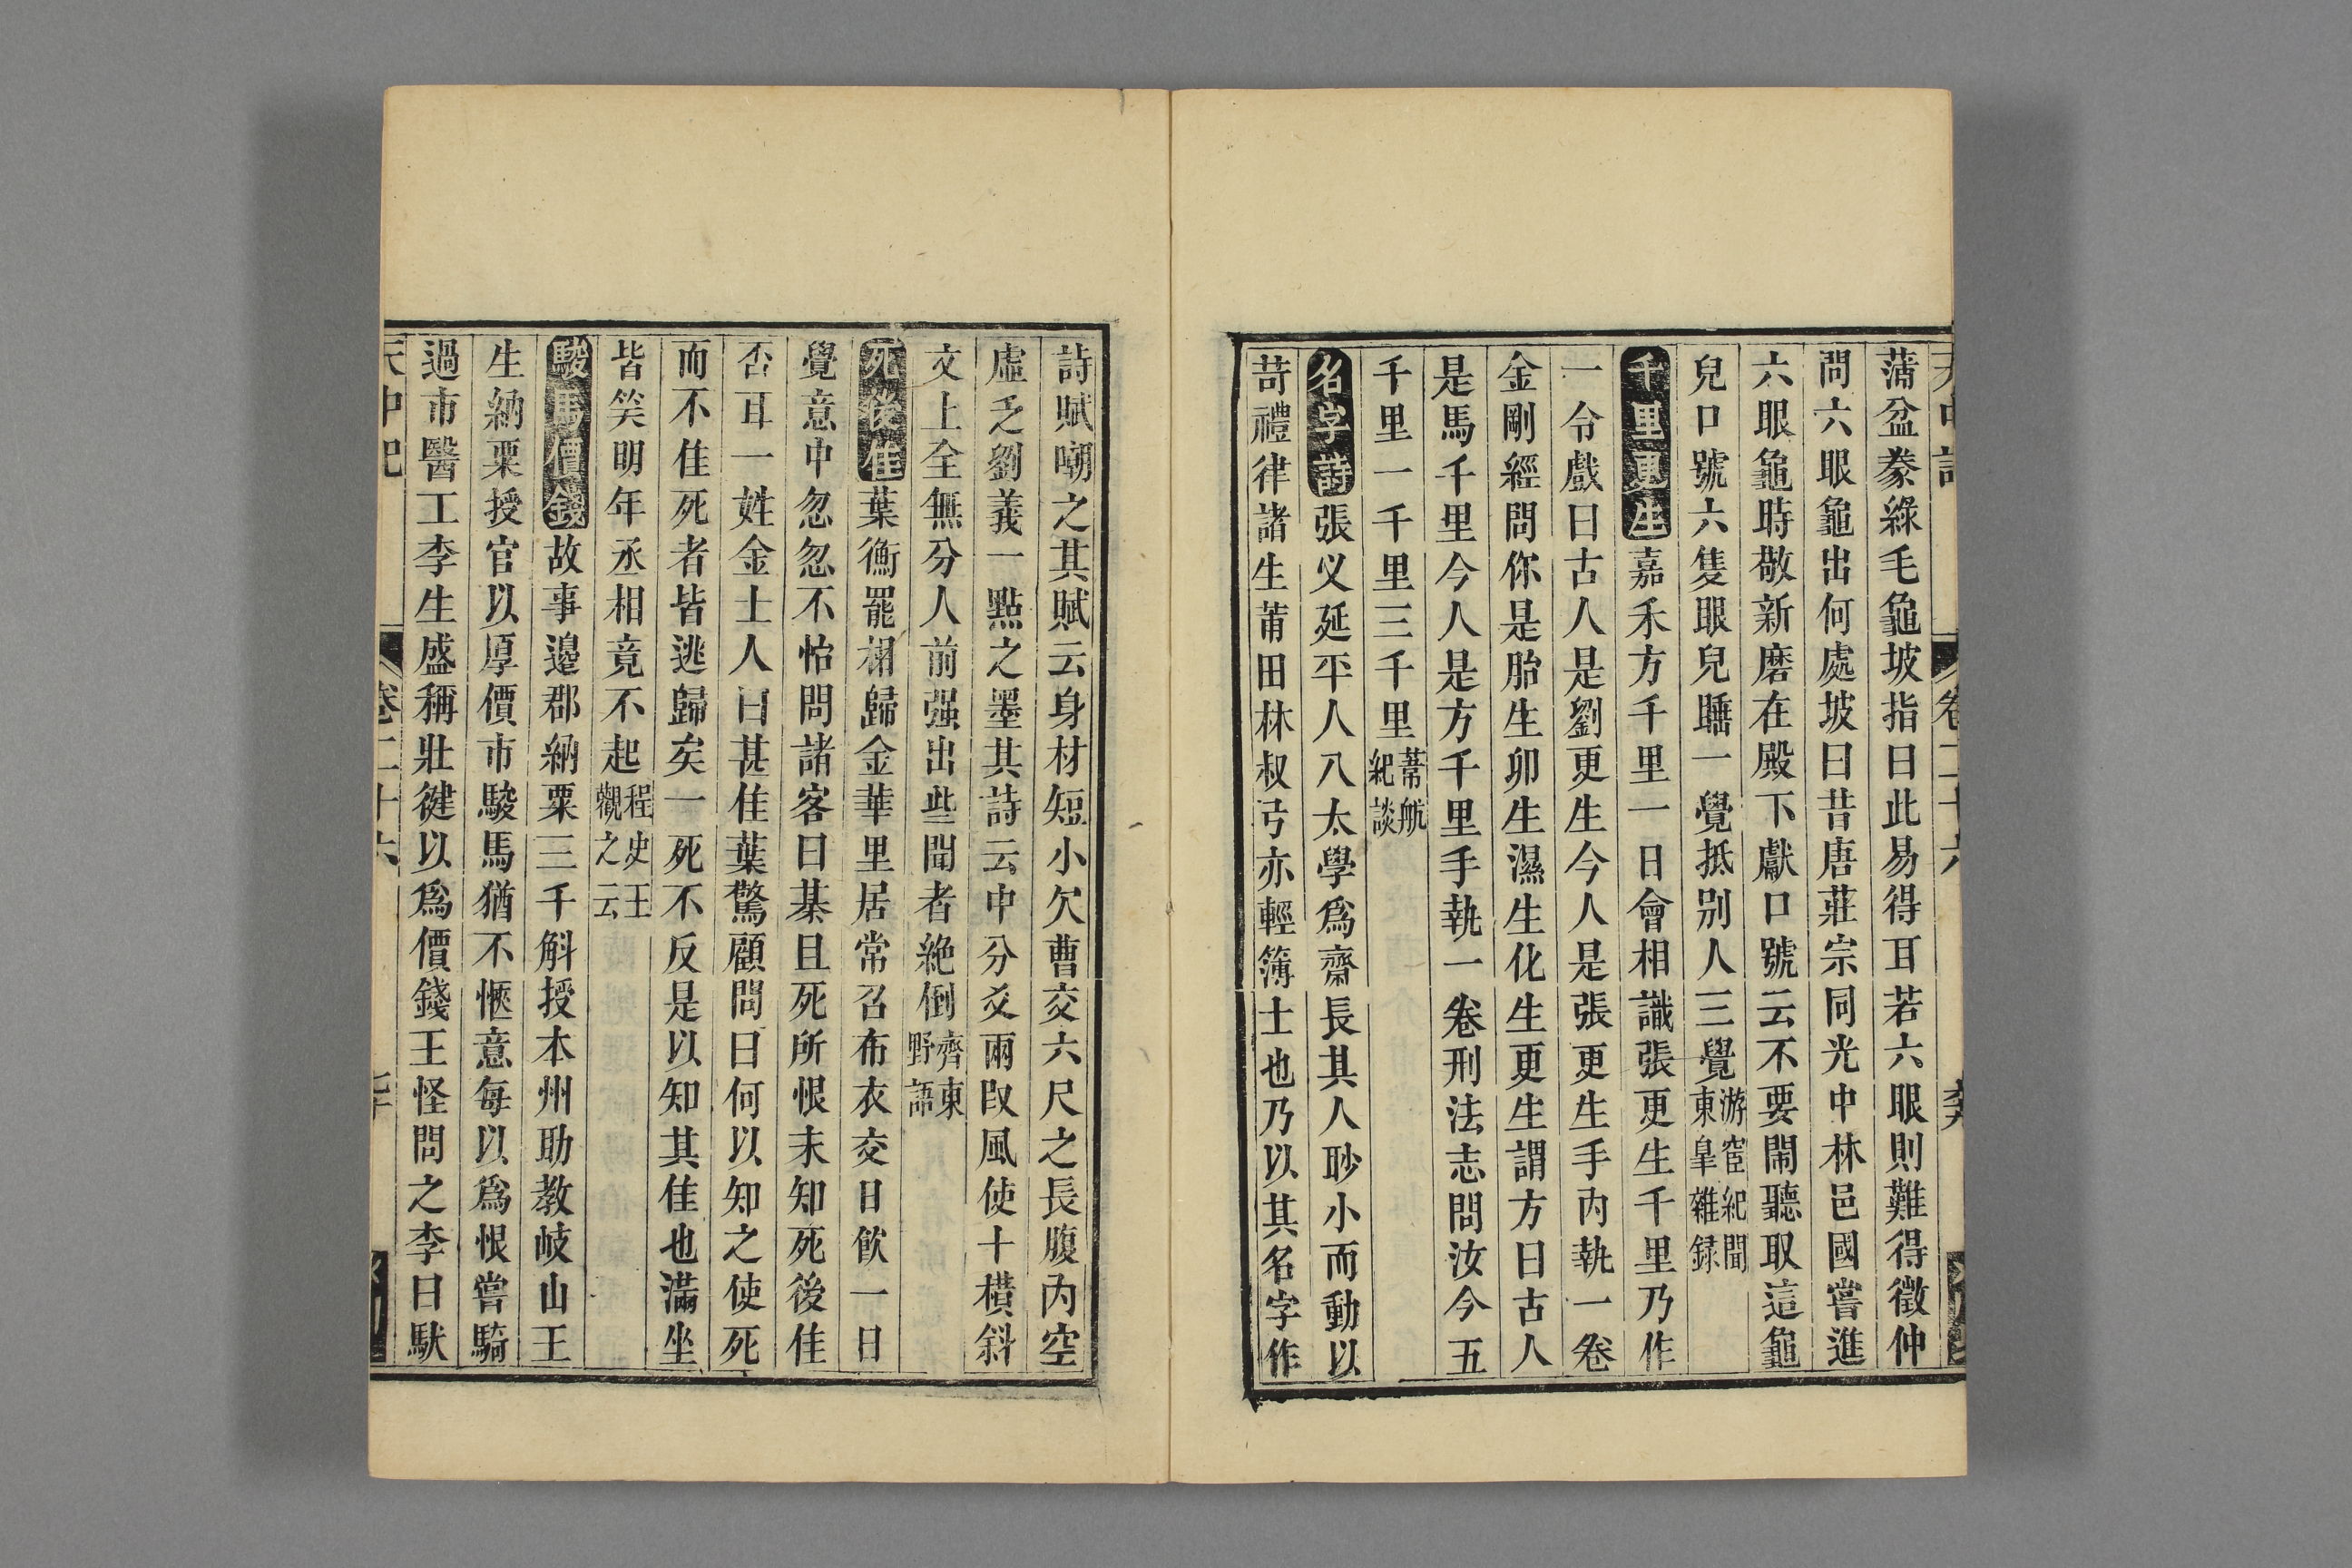 蒲盆豢綠毛龜坡指曰此易得耳若六眼則難得徵仲
問六眼龜出何處坡曰昔唐莊宗同光中林邑國嘗進
六眼龜時敬新磨在殿下獻口號云不要鬧聽取這龜
兒口號六隻眼兒睡一覺抵别人三覺游宦紀聞東臯雜録
千里更生嘉禾方千里一日會相識張更生千里乃作
一令戲曰古人是劉更生今人是張更生手內執一卷
金剛經問你是胎生卵生濕生化生更生謂方曰古人
是馬千里今人是方千里手執一卷刑法志問汝今五
千里一千里三千里葦航紀談
名字詩張义延平人八太學爲齋長其人眇小而動以
苛禮律諸生莆田林叔弓亦輕簿士也乃以其名字作
詩賦嘲之其賦云身材短小欠曹交六尺之長腹內空
虛乏劉義一點之墨其詩云中分爻兩段風使十横斜
文上全無分人前强出些聞者絶倒齊東野語
死後佳葉衡罷相歸金華里居常召布衣交日飲一日
覺意中忽忽不怡問諸客曰某且死所恨未知死後佳
否耳一姓金士人曰甚佳葉驚顧問曰何以知之使死
而不佳死者皆逃歸矣一死不反是以知其佳也滿坐
皆笑明年丞相竟不起程史王觀之云
駿馬價錢故事邊郡納粟三千斛授本州助教岐山王
生納粟授官以厚價市駿馬猶不愜意每以爲恨嘗騎
過市醫工李生盛稱壯健以爲價錢王怪問之李曰馱
天中記
卷二十六